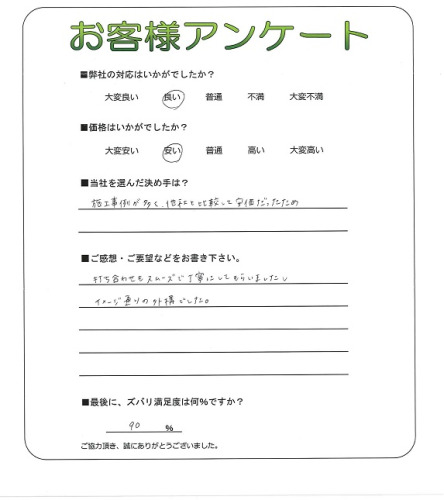 お客様アンケート
■弊社の対応はいかがでしたか？
大変良い 良い 普通 不満 大変不満
■価格はいかがでしたか？
大変安い 安い 普通 高い 大変高い
■当社を選んだ決め手は？
施工事例が多く、他社と比較して安価だったため
■ご感想・ご要望などをお書き下さい。
打ち合わせもスムーズで丁寧にしてもらいましたし
イメージ通りの外構でした。
■最後に、ズバリ満足度は何%ですか？
90 %
ご協力頂き、誠にありがとうございました。